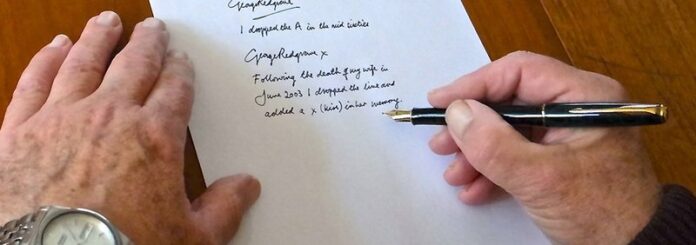 GeorgeRedgrave
I dropped the A in the mid sixties
GeorgeRedgrave x
Following the death of my wife in
June 2003 I dropped the line and
added a x (kiss) in her memory.